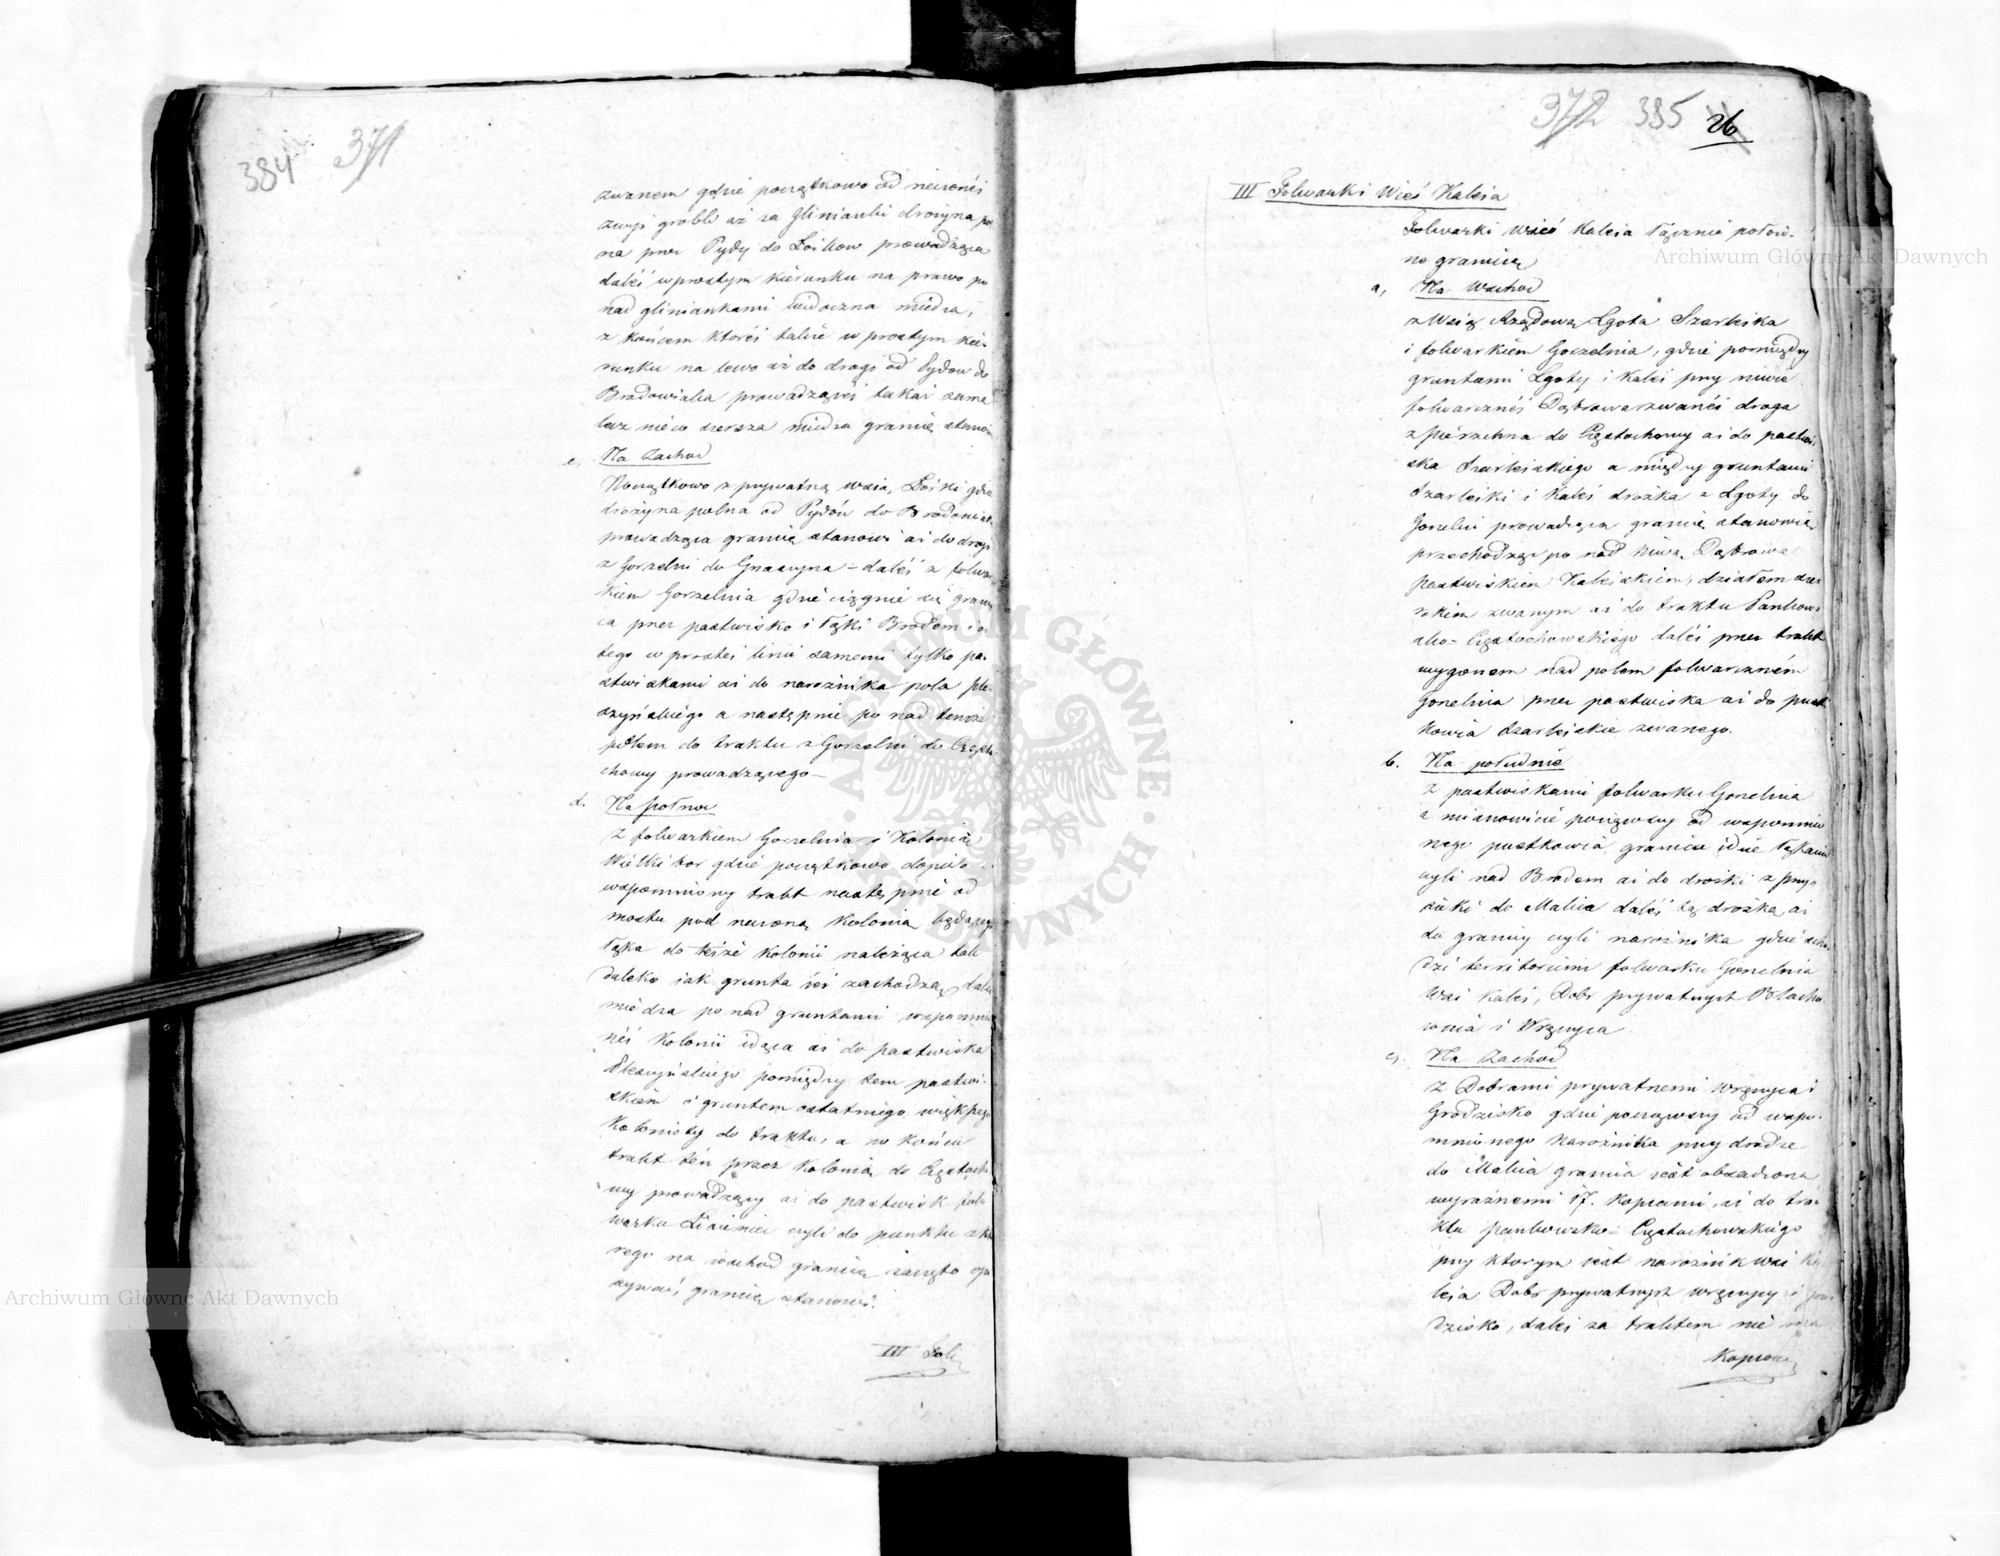 384 371
zwanem gdzie początkowo od rzeczonéj
grobli aż za glinianki drożyna po
na przez Pydy do Łoików prowadząca
daléj w prostym kierunku na prawo po
nad gliniankami widoczna miedza,
z końcem któréj także w prostym kie-
runku na lewo aż do drogi od Pydów do
prowadzącéj takaż sama
lecz nieco szersza miedza granicę stanowi
c, Na Zachod
Początkowo z prywatną wsią Łojki gdzie
drożyna polna od Pydów do
prowadząca granicę stanowi aż do drogi
z Gorzelni do Gnaszyna – daléj z folwar
kiem Gorzelnia gdzie ciągnie się grani
ca przez pastwisko i łąki Brodem i od
tego w prostéj linii samemi tylko pa-
stwiskami aż do narożnika pola
a następnie po nad temże
polem do traktu z Gorzelni do Często
chowy prowadzącego –
d. Na połnoc
z folwarkiem Gorzelnia i Kolonią
Wielki bor gdzie początkowo dopiero
wspomniony trakt następnie od
mostu pod rzeczoną Kolonią będącego
łąka do téjże Kolonii należąca tak
daleko jak grunta jéj zachodzą, daléj
miedza po nad gruntami wspomnio
néj Kolonii idąca aż do pastwiska
pomiędzy tem pastwi-
skiem i gruntem ostatniego większego
Kolonisty do traktu, a w końcu
trakt ten przez Kolonią do Częstocho
wy prowadzący aż do pastwisk fol-
warku czyli do punktu z któ
rego na wschod granicę zaczęto opi
sywać granicę stanowi.
III Folw
372 385 26
III Folwarki Wieś Kalcia
Folwarki Wieś Kalcia łącznie położo-
ne graniczą
a, Na Wschod
z Wsią Rządową Lgota Szarlejka
i folwarkiem Gorzelnia, gdzie pomiędzy
gruntami Lgoty i Kaléj przy niwie
folwarcznéj Dąbrowa zwanéj droga
z do Częstochowy aż do pastwi
ska Szarlejskiego a między gruntami
Szarlejki i Kaléj drożka z Lgoty do
Gorzelni prowadząca granicę stanowią
przechodząc po nad niwą Dąbrowa
pastwiskiem Kalejskiem, działem sze
rokim zwanym aż do traktu Pankows
sko-Częstochowskiego daléj przez trakt
wygonem nad polem folwarczném
Gorzelnia przez pastwiska aż do pust
kowia Szarlejskie zwanego.
b. Na południe
z pastwiskami folwarku Gorzelnia
a mianowicie począwszy od wspomnio
nego pustkowia, granica idzie łąkami
czyli nad Brodem aż do drożki z
do Malica daléj tą drożką aż
do granicy czyli narożnika gdzie scho
dzi territorium folwarku Gorzelnia
Wsi Kaléj, Dobr prywatnych Blacho
wnia i Wręczyca
c, Na Zachod
z Dobrami prywatnemi Wręczyca i
Grodzisko gdzie począwszy od wspo-
mnionego narożnika przy drodze
do Malica granica jest obsadzona
wyraźnemi 17. Kopcami, aż do tra-
ktu Pankowsko-Częstochowskiego
przy ktorym jest narożnik wsi Ka
leja Dobr prywatnych Wręczycy i Gro
dzisko, daléj za traktem nie ma
Kopcow
ARCHIWUM GŁÓWNE AKT DAWNYCH
Archiwum Główne Akt Dawnych
Archiwum Główne Akt Dawnych